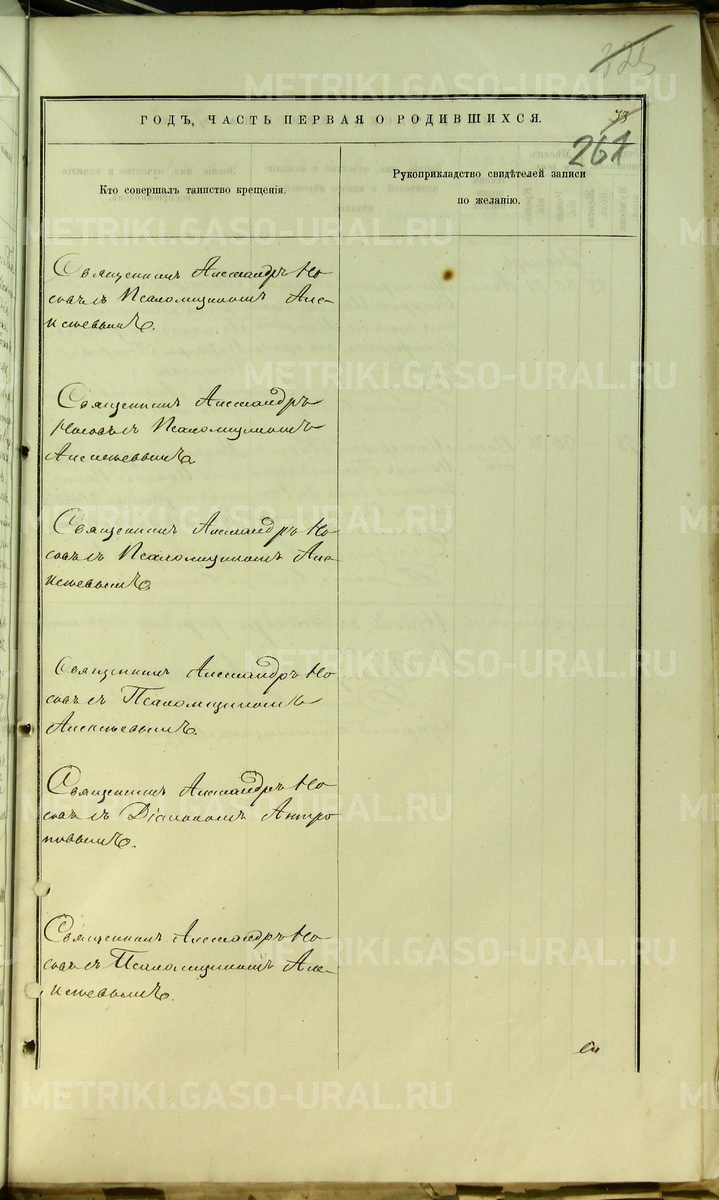 325
ГОДЪ, ЧАСТЬ ПЕРВАЯ О РОДИВШИХСЯ.
73
261
Кто совершалъ таинство крещенія.
Рукоприкладство свидѣтелей записи
по желанію.
Священникъ Александръ Но
совъ съ Псаломщикомъ Але-
ксѣевымъ.
Священникъ Александръ
Носовъ съ Псаломщикомъ
Алексѣевымъ
Священникъ Александръ Но
совъ съ Псаломщикомъ Але-
ксѣевымъ
Священникъ Александръ Но
совъ съ Псаломщикомъ
Алексѣевымъ
Священникъ Александръ Но
совъ съ Діакономъ Антро
повымъ.
Священникъ Александръ Но-
совъ съ Псаломщикомъ Але-
ксѣевымъ.
METRIKI.GASO-URAL.RU